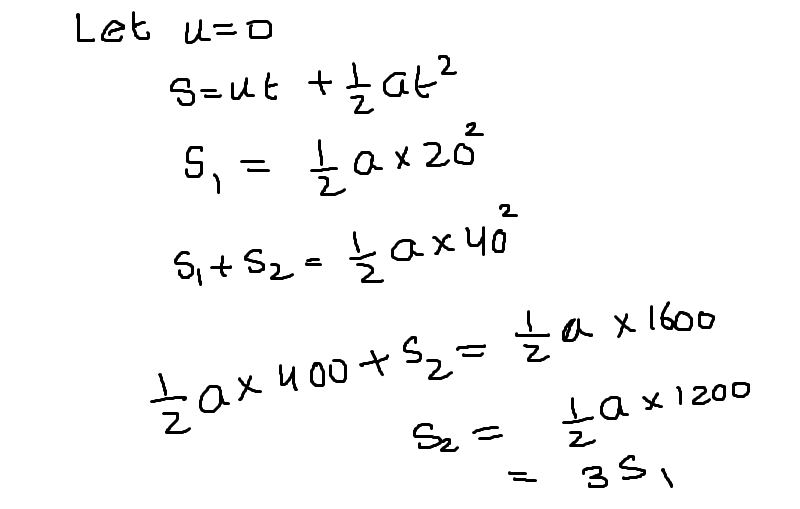 Let u=0
S=ut + 1/2 at²
S₁ = 1/2 a × 20²
S₁ + S₂ = 1/2 a × 40²
1/2 a × 400 + S₂ = 1/2 a × 1600
S₂ = 1/2 a × 1200
= 3S₁